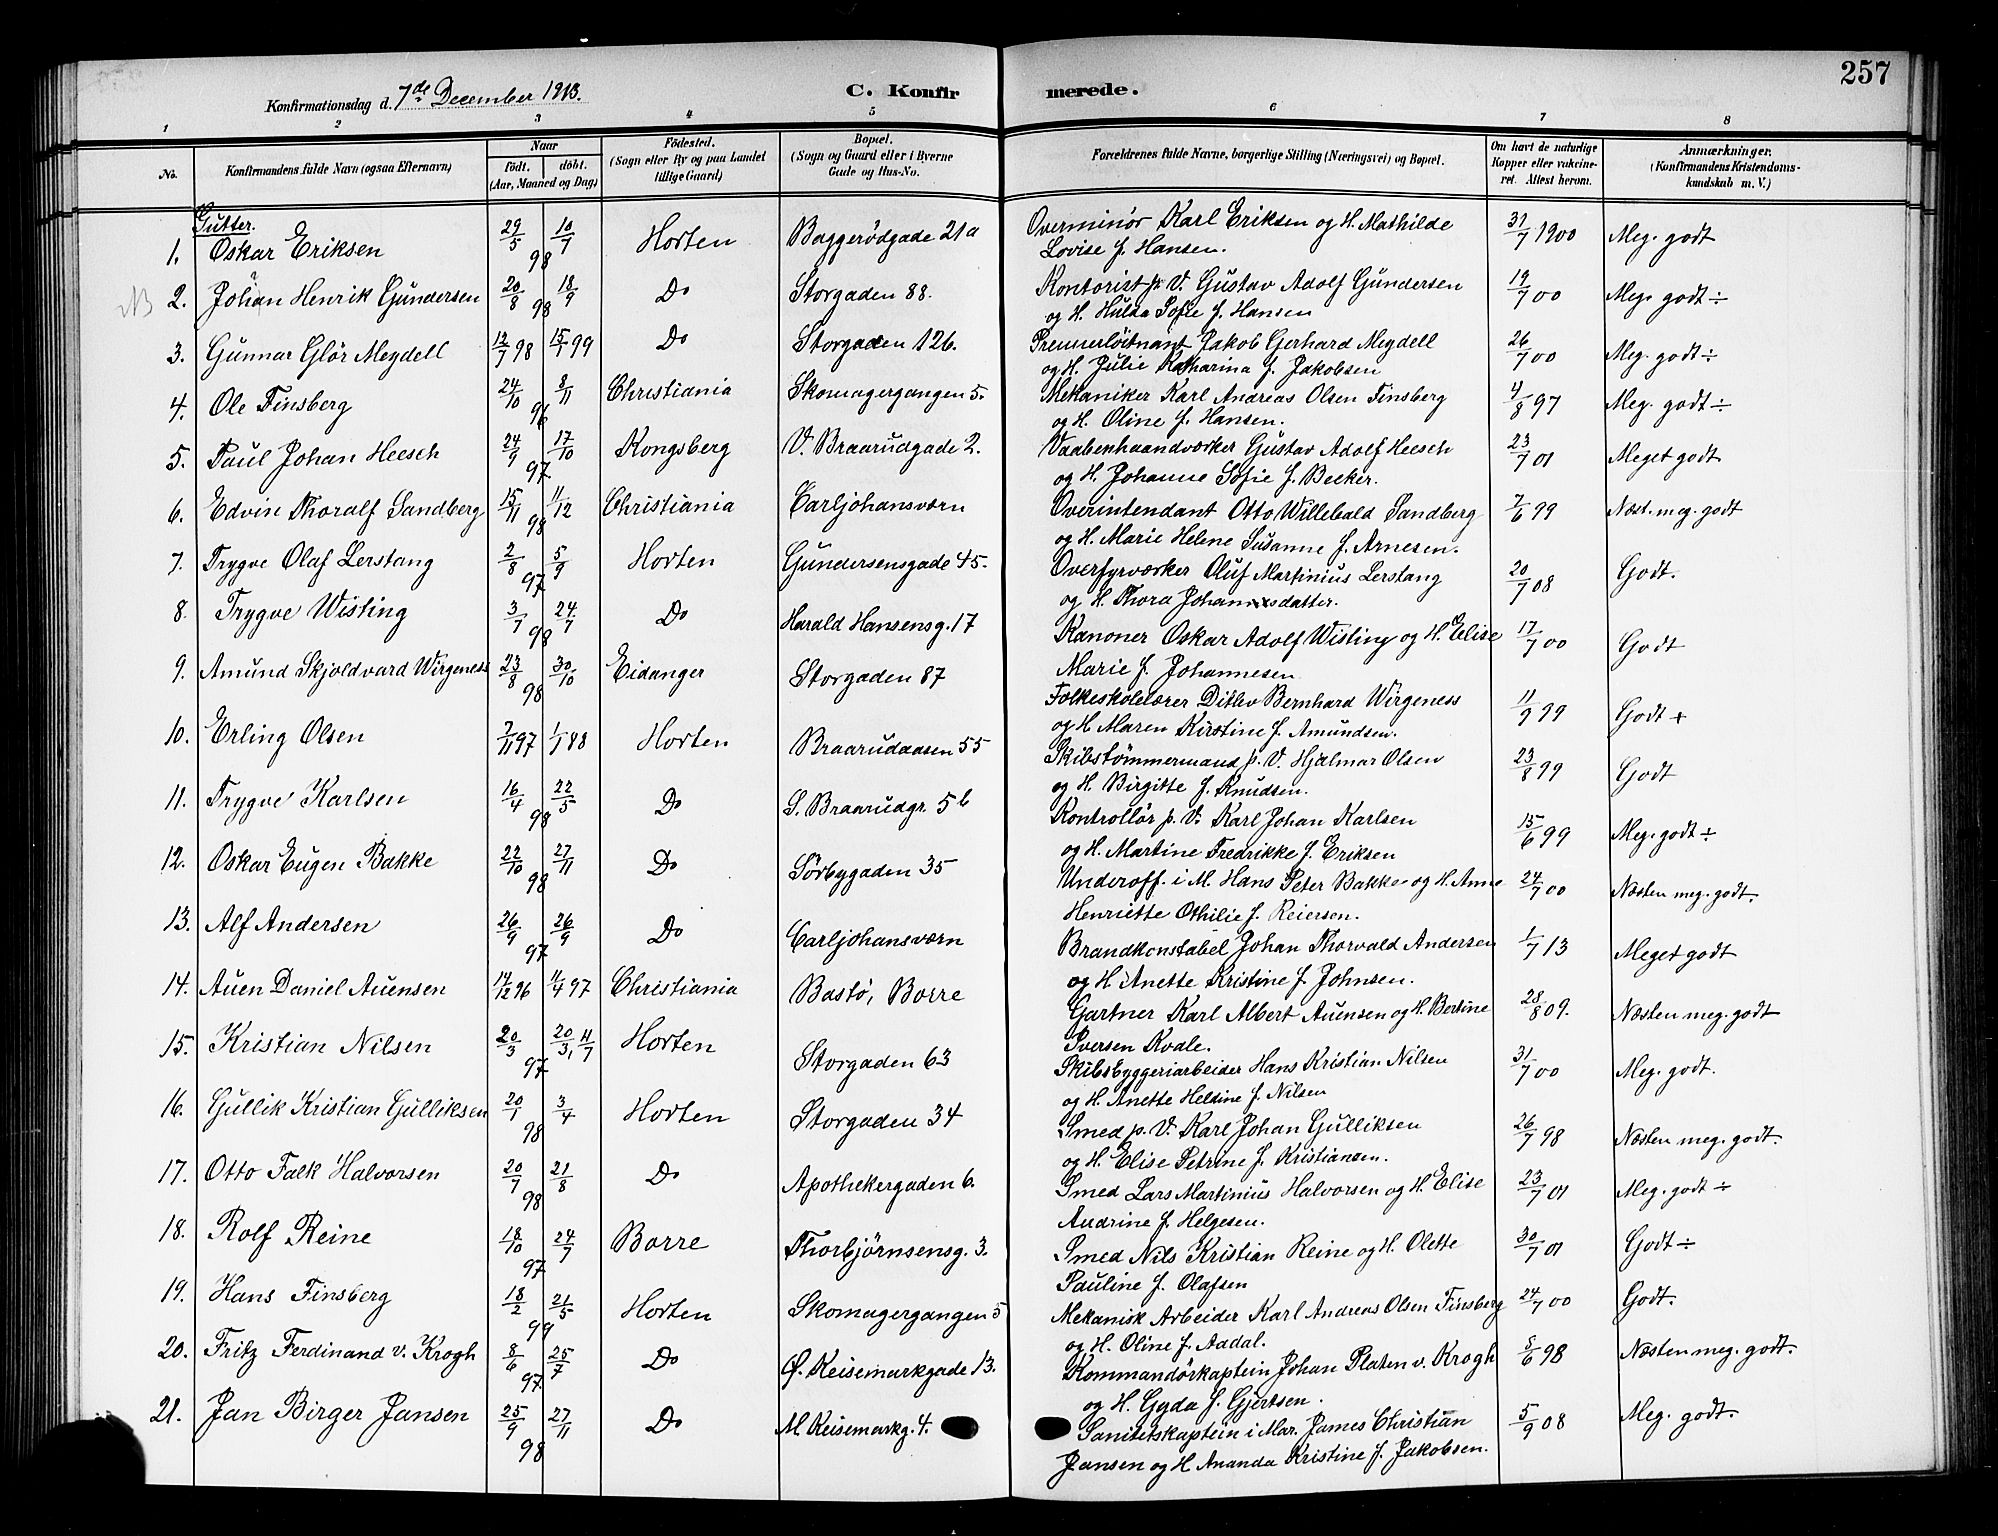 257
Konfirmationsdag d. 7de December 1913. C. Konfir merede.
1 2 3 4 5 6 7 8
No. Konfirmandens fulde Navn (ogsaa Efternavn) Naar födt. döbt. (Aar, Maaned og Dag) Födested. (Sogn eller By og paa Landet tillige Gaard) Bopæl. (Sogn og Gaard eller i Byerne Gade og Hus-No. Forældrenes fulde Navne, borgerlige Stilling (Næringsvei) og Bopæl. Om havt de naturlige Kopper eller vakcineret. Attest herom. Anmærkninger. (Konfirmandens Kristendomskundskab m. V.)
Gutter.
1. Oskar Eriksen 29/5 98 10/7 Horten Baggerödgade 21a Overminör Karl Eriksen og H. Mathilde 31/7 1900 Meg. godt
Lovise f. Hansen.
NB 2. Johan Henrik Gundersen 20/8 98 18/9 Do Storgaden 88. Kontorist p. V. Gustav Adolf Gundersen 19/7 00 Meg. godt ÷
og H. Hulda Sofie f. Hansen
3. Gunnar Glör Meydell 13/7 98 15/1 99 Do Storgaden 126. Premierlöitnant Jakob Gerhard Meydell 26/7 00 Meg. godt ÷
og H. Julie Katharina f. Jakobsen
4. Ole Finsberg 24/10 96 8/11 Christiania Skomagergangen 5. Mekaniker Karl Andreas Olsen Finsberg 4/8 97 Meg. godt ÷
og H. Oline f. Hansen.
5. Paul Johan Heesch 24/9 97 17/10 Kongsberg V. Braarudgade 2. Vaabenhaandværker Gustav Adolf Heesch 23/7 01 Meget godt
og H. Johanne Sofie f. Becker.
6. Edvin Thoralf Sandberg 15/11 98 11/12 Christiania Carljohansværn Overintendant Otto Willebald Sandberg 7/6 99 Næst. meg. godt
og H. Marie Helene Susanne f. Arnesen.
7. Trygve Olaf Lerstang 2/8 97 5/9 Horten Gundersensgade 45. Overfyrværker Oluf Martinius Lerstang 20/7 08 Godt.
og H. Thora Johannesdatter.
8. Trygve Wisting 3/7 98 24/7 Do Harald Hansensg. 17 Kanoner Oskar Adolf Wisting og H. Elise 17/7 00 Godt
Marie f. Johannesen
9. Amund Skjoldvard Wirgeness 23/8 98 30/10 Eidanger Storgaden 87 Folkeskolelærer Ditlev Bernhard Wirgeness 11/9 99 Godt +
og H. Maren Kirstine f. Amundsen.
10. Erling Olsen 7/11 97 1/1 88 Horten Braarudaasen 55 Skibstömmermand p. V. Hjalmar Olsen 23/8 99 Godt
og H. Birgitte f. Knudsen.
11. Trygve Karlsen 16/4 98 22/5 Do S. Braarudgr. 5b Kontrollör p. V. Karl Johan Karlsen 15/6 99 Meg. godt ÷
og H. Martine Fredrikke f. Eriksen
12. Oskar Eugen Bakke 22/10 98 27/11 Do Sörbygaden 35 Underoff. i M. Hans Peter Bakke og H. Anne 24/7 00 Næsten meg. godt.
Henriette Othilie f. Reiersen.
13. Alf Andersen 26/9 97 26/9 Do Carljohansværn Brandkonstabel Johan Thorvald Andersen 1/7 13 Meget godt
og H. Anette Kristine f. Johnsen.
14. Auen Daniel Auensen 14/12 96 11/4 97 Christiania Bastö, Borre Gartner Karl Albert Auensen og H. Bertine 28/8 09. Næsten meg. godt
Iversen Kvale.
15. Kristian Nilsen 20/3 97 20/3, 11/7 Horten Storgaden 63 Skibsbyggeriarbeider Hans Kristian Nilsen 31/7 00 Meg. godt.
og H. Anette Helsine f. Nilsen
16. Gullik Kristian Gulliksen 20/1 98 3/4 Horten Storgaden 34 Smed p. V. Karl Johan Gulliksen 26/7 98 Næsten meg. godt.
og H. Elise Petrine f. Kristiansen.
17. Otto Falk Halvorsen 20/7 98 21/8 Do Apothekergaden 6. Smed Lars Martinius Halvorsen og H. Elise 23/7 01 Meg. godt ÷
Andrine f. Helgesen.
18. Rolf Reine 18/10 97 24/7 Borre Thorbjörnsensg. 3. Smed Nils Kristian Reine og H. Olette 30/7 01 Godt ÷
Pauline f. Olafsen
19. Hans Finsberg 18/2 99 21/5 Horten Skomagergangen 5 Mekanisk Arbeider Karl Andreas Olsen Finsberg 24/7 00 Godt.
og H. Oline f. Aadal.
20. Fritz Ferdinand v. Krogh 8/6 97 25/7 Do Ø. Keisemarkgade 13. Kommandörkaptein Johan Platen v. Krogh 8/6 98 Næsten meg. godt.
og H. Gyda f. Gjertsen.
21. Jan Birger Jansen 25/9 98 27/11 Do M. Keisemarkg. 4. Sanitetskaptein i Mar. James Christian 5/9 08 Meg. godt.
Jansen og H Ananda Kristine f. Jakobsen.